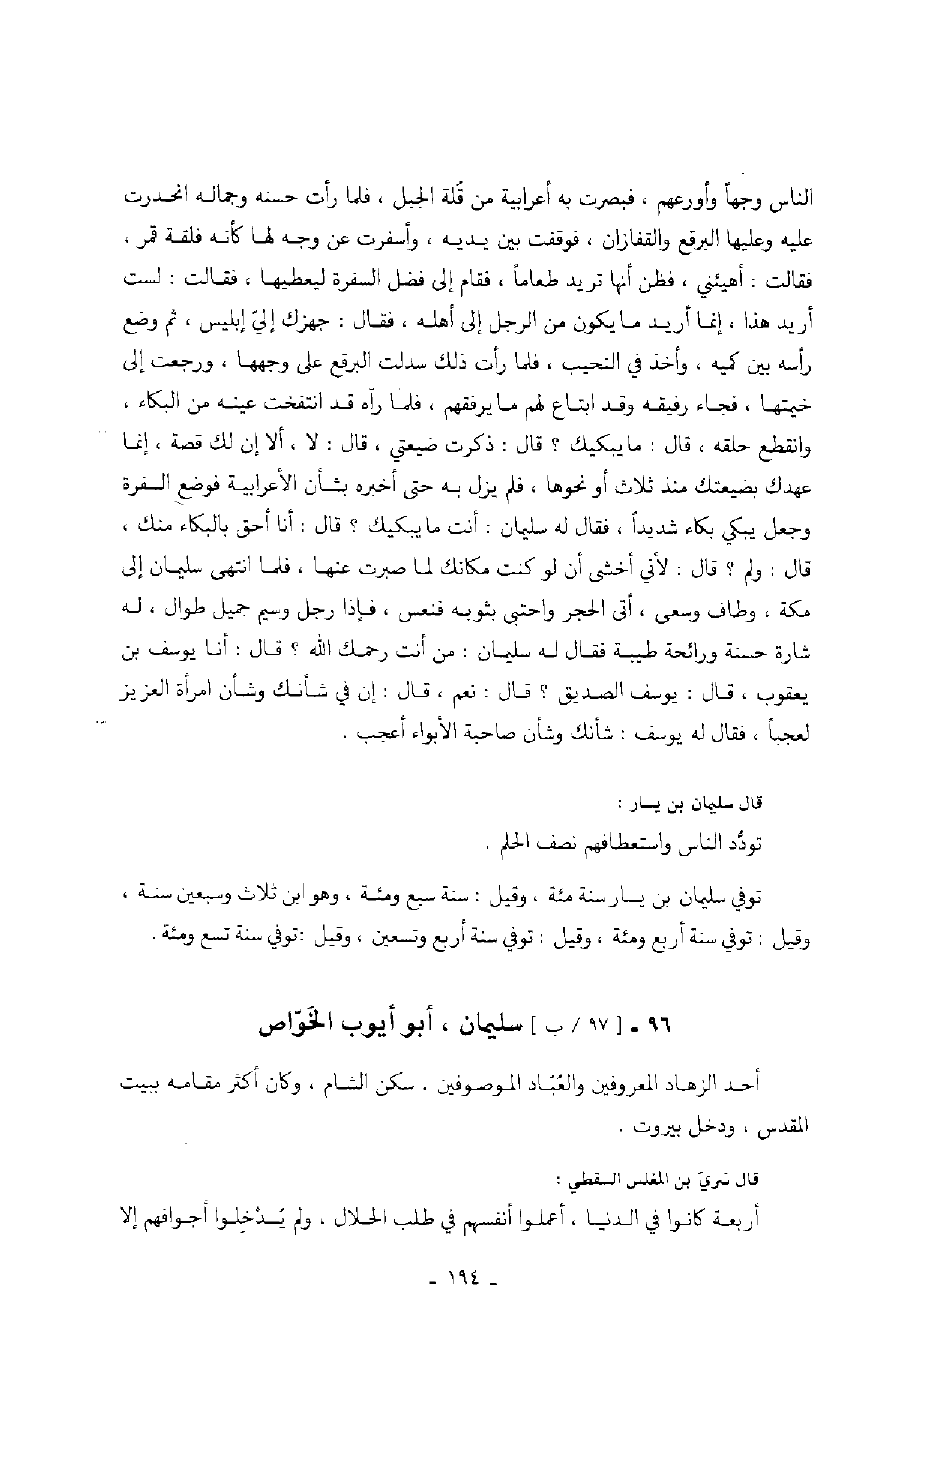 الناس وجهاً وأورعهم ، فبصرت به أعرابية من قُلة الجبل ، فلما رأت حسنه وجماله انحدرت
عليه وعليها البرقع والقفازان ، فوقفت بين يديه ، وأسفرت عن وجه لها كأنه فلقة قمر ،
فقالت : أهبئني ، فظن أنها تريد طعاماً ، فقام إلى فضل السفرة ليعطيها ، فقالت : لست
أريد هذا ، إنما أريد ما يكون من الرجل إلى أهله ، فقال : جهزك إليّ إبليس ، ثم وضع
رأسه بين كميه ، وأخذ في النحيب ، فلما رأت ذلك سدلت البرقع على وجهها ، ورجعت إلى
خيمتها ، فجاء رفيقه وقد ابتاع لهم ما يرفقهم ، فلما رآه قد انتفخت عينه من البكاء ،
وانقطع حلقه ، قال : ما يبكيك ؟ قال : ذكرت ضيعتي ، قال : لا ، ألا إن لك قصة ، إنما
عهدك بضيعتك منذ ثلاث أو نحوها ، فلم يزل به حتى أخبره بشأن الأعرابية فوضع السفرة
وجعل يبكي بكاء شديداً ، فقال له سليمان : أنت ما يبكيك ؟ قال : أنا أحق بالبكاء منك ،
قال : ولم ؟ قال : لأني أخشى أن لو كنت مكانك لما صبرت عنها ، فلما انتهى سليمان إلى
مكة ، وطاف وسعى ، أتى الحجر واحتبى بثوبه فنعس ، فإذا رجل وسيم جميل طوال ، له
شارة حسنة ورائحة طيبة فقال له سليمان : من أنت رحمك الله ؟ قال : أنا يوسف بن
يعقوب ، قال : يوسف الصديق ؟ قال : نعم ، قال : إن في شأنك وشأن امرأة العزيز
لعجباً ، فقال له يوسف : شأنك وشأن صاحبة الأبواء أعجب .
قال سليمان بن يسار :
تودُّد الناس واستعطافهم نصف الحلم .
توفي سليمان بن يسار سنة مئة ، وقيل : سنة سبع ومئة ، وهو ابن ثلاث وسبعين سنة ،
وقيل : توفي سنة أربع ومئة ، وقيل : توفي سنة أربع وتسعين ، وقيل :توفي سنة تسع ومئة .
٩٦ ـ [ ٩٧ / ب ] سليمان ، أبو أيوب الخَوّاص
أحد الزهاد المعروفين والعُبّاد الموصوفين . سكن الشام ، وكان أكثر مقامه ببيت
المقدس ، ودخل بيروت .
قال سَريّ بن المغلس السقطي :
أربعة كانوا في الدنيا ، أعملوا أنفسهم في طلب الحلال ، ولم يُدْخِلوا أجوافهم إلا
ـ ١٩٤ ـ